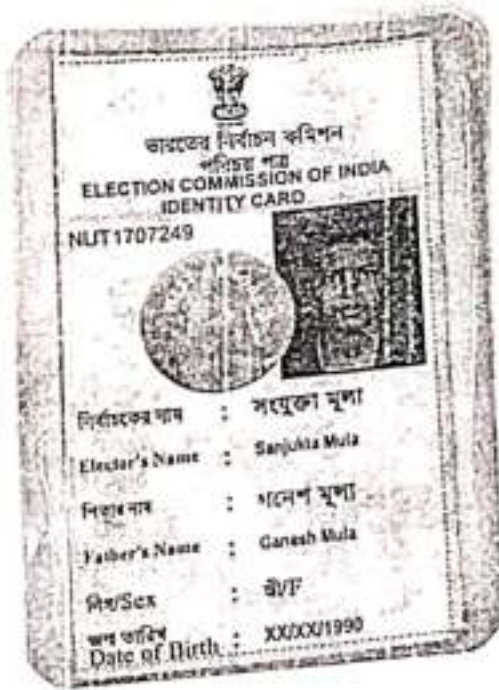 ভারতের নির্বাচন কমিশন
পরিচয় পত্র
ELECTION COMMISSION OF INDIA
IDENTITY CARD
NUT1707249
নির্বাচকের নাম : সংযুক্তা মূলা
Elector's Name : Sanjukta Mula
পিতার নাম : গনেশ মূলা
Father's Name : Ganesh Mula
লিঙ্গ/Sex : স্ত্রী/F
জন্ম তারিখ
Date of Birth : XX/XX/1990